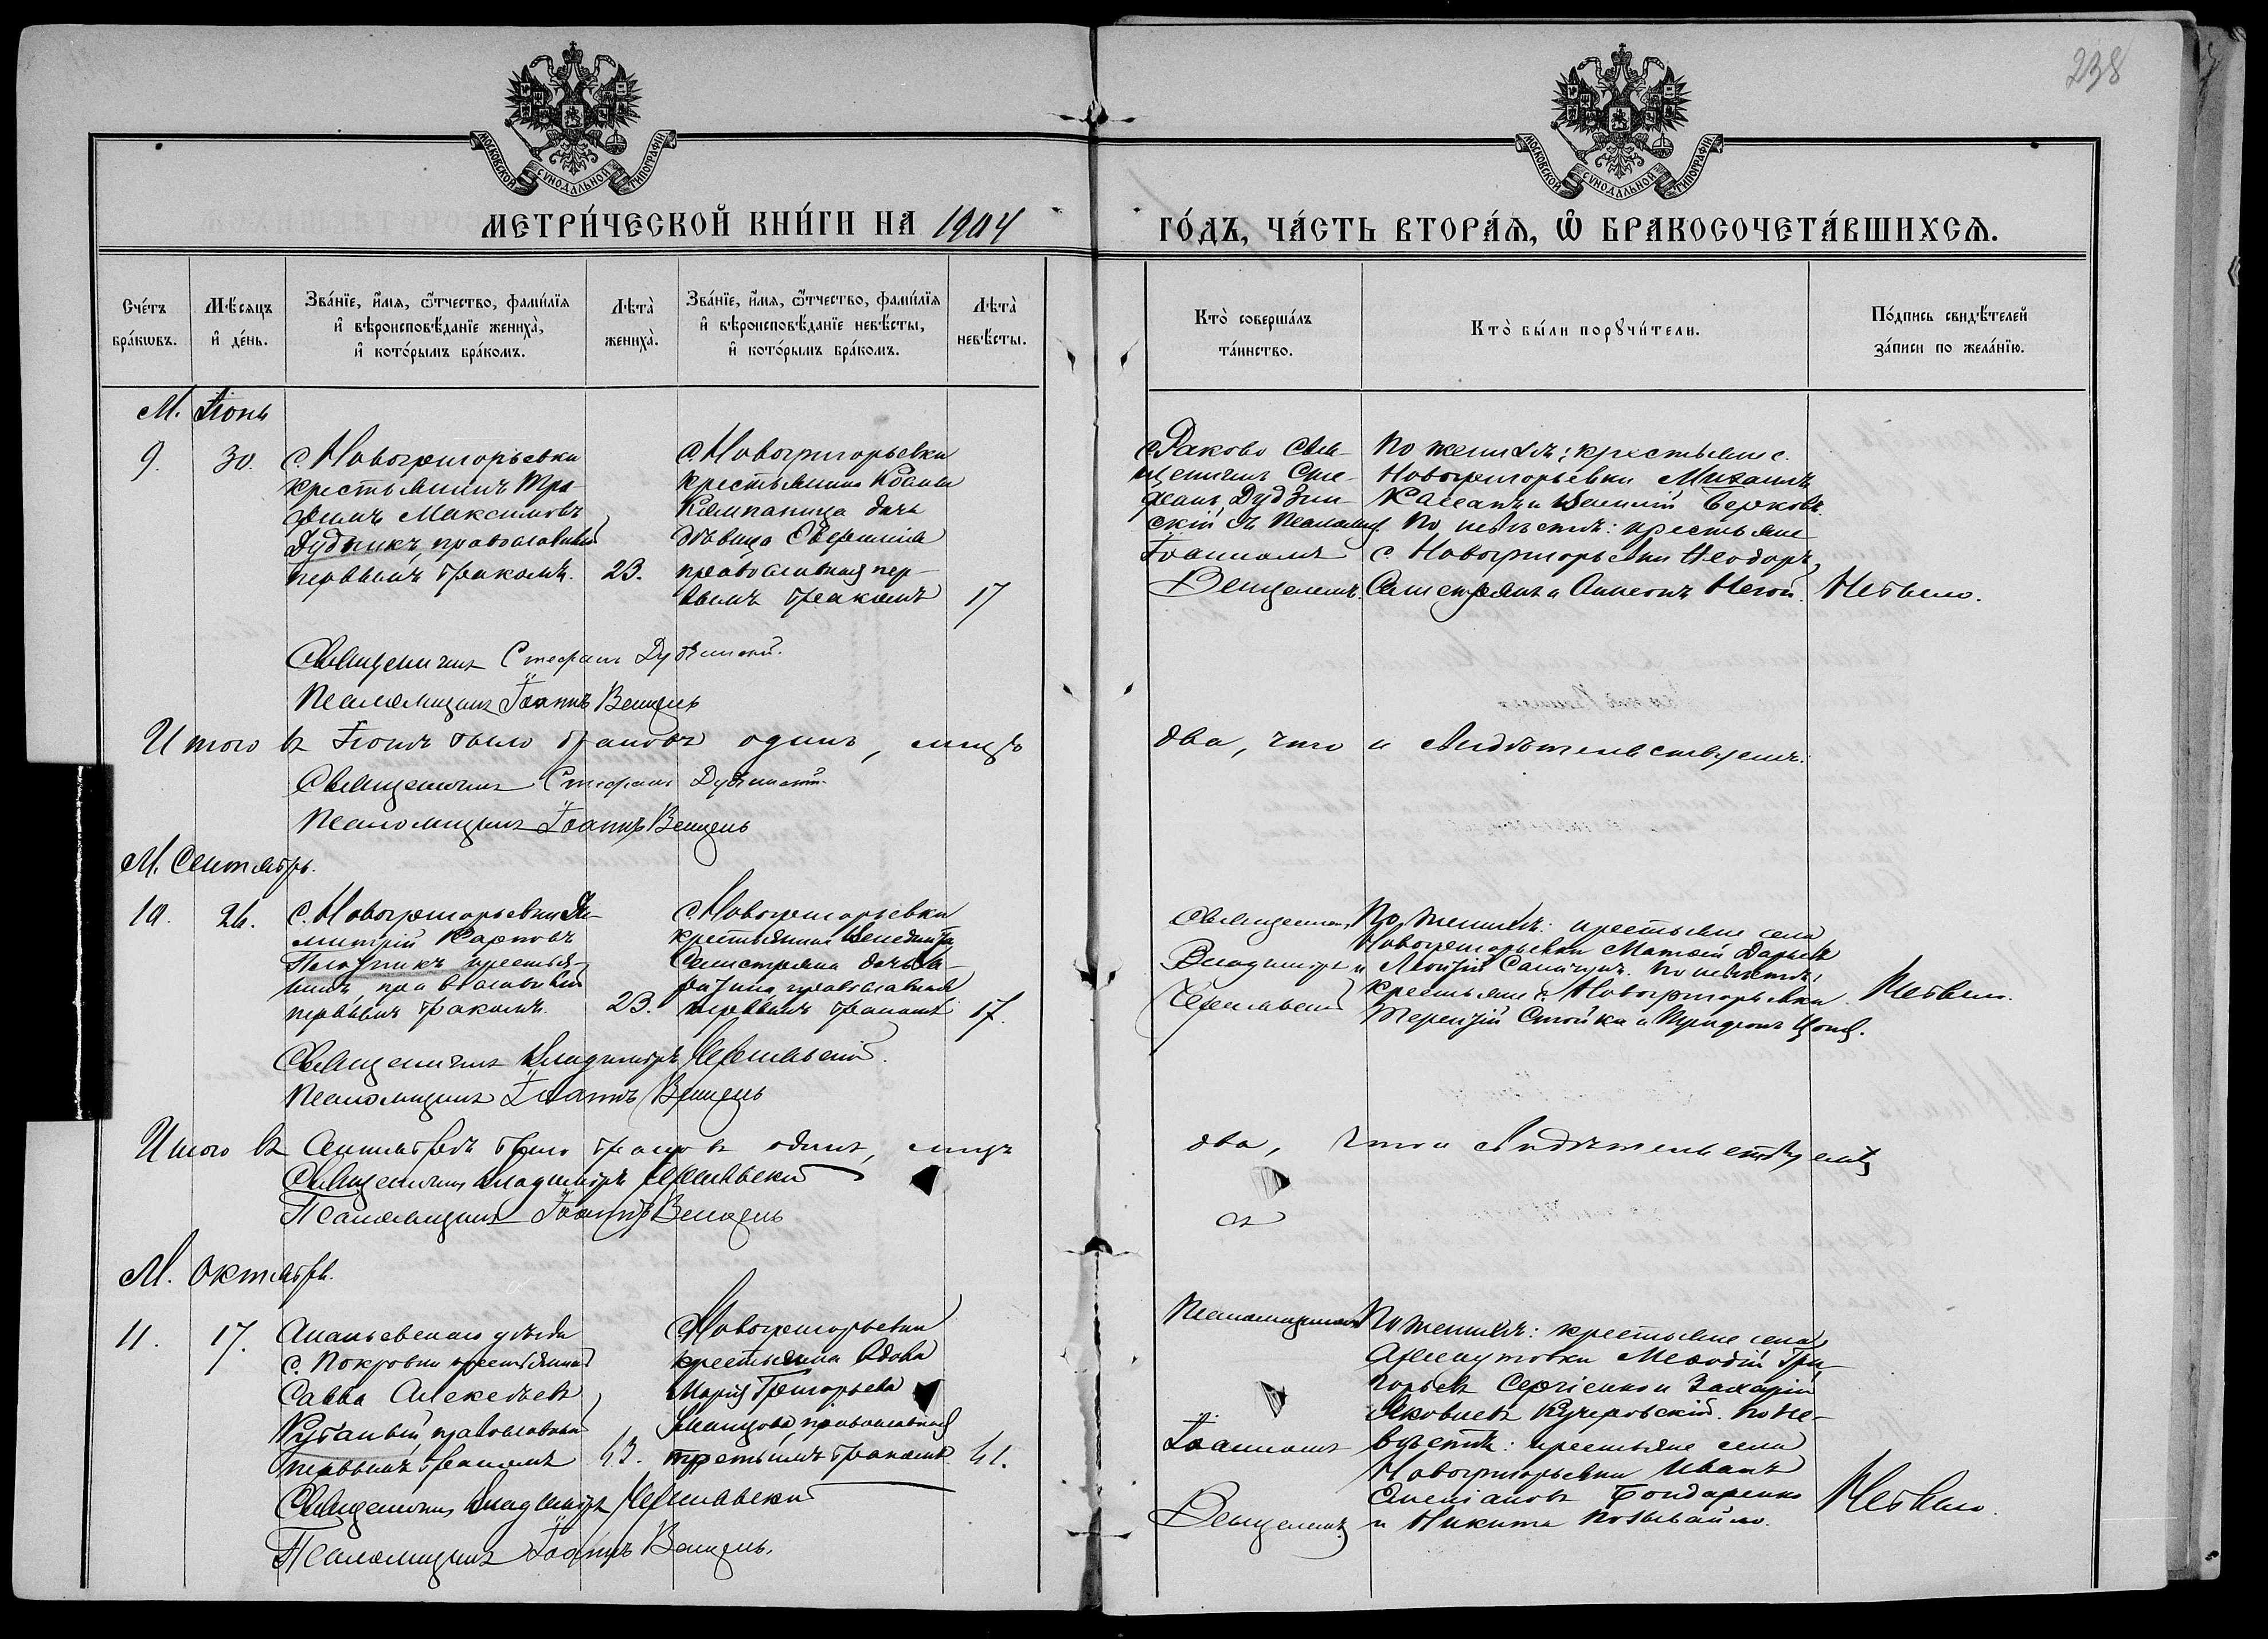 238
МОСКОВСКОЙ СѴНОДАЛЬНОЙ ТИПОГРАФІИ
МОСКОВСКОЙ СѴНОДАЛЬНОЙ ТИПОГРАФІИ
МЕТРИ́ЧЕСКОЙ КНИ́ГИ НА 1904
ГО́ДЪ, ЧА́СТЬ ВТОРА́Ѧ, Ѽ БРАКОСОЧЕТА́ВШИХСѦ.
Сче́тъ бра́кѡвъ.
Мѣ́сяцъ и҆ де́нь.
Зва́нїе, и҆́мѧ, ѻ҆́тчество, фами́лїѧ
и҆ вѣроисповѣ́данїе жениха̀,
и҆ кото́рымъ бра́комъ.
Лѣта̀ жениха̀.
Зва́нїе, и҆́мѧ, ѻ҆́тчество, фами́лїѧ
и҆ вѣроисповѣ́данїе невѣ́сты,
и҆ кото́рымъ бра́комъ.
Лѣта̀ невѣ́сты.
Кто̀ соверша́лъ
та́инство.
Кто̀ бы́ли порꙋчи́тели.
По́дпись свидѣ́телей
за́писи по жела́нїю.
М. Іюнь
9. 30.
с. Новогригорьевки
крестьянинъ Тро-
фимъ Максимовъ
Дудникъ, православный
первымъ бракомъ. 23.
с. Новогригорьевки
крестьянина
дочь
дѣвица Евфимія
православная пер-
вымъ бракомъ 17
с. Раково Свя-
щенникъ Сте-
фанъ
скій съ псаломщ.
Іоанномъ
Венцелемъ.
По женихѣ: крестьяне с.
Новогригорьевки Михаилъ
и Василій
По невѣстѣ: крестьяне
с. Новогригорьевки Ѳеодоръ
Селистрянъ и
Не было.
Священникъ Стефанъ
Псаломщикъ Іоаннъ Венцель
Итого въ Іюнѣ было браковъ одинъ, лицъ два, что и свидѣтельствуемъ:
Священникъ Стефанъ
Псаломщикъ Іоаннъ Венцель
М. Сентябрь.
10. 26.
с. Новогригорьевки Ди-
митрій Карповъ
крестья-
нинъ православный
первымъ бракомъ. 23.
с. Новогригорьевки
крестьянина Венедикта
Селистряна дочь
православная
первымъ бракомъ 17.
Священник.
Владимиръ
По женихѣ: крестьяне села
Новогригорьевки Матѳей
и По невѣстѣ:
крестьяне с. Новогригорьевки
Терентій Стойка и Трифонъ
Не было.
Священникъ Владимиръ
Псаломщикъ Іоаннъ Венцель
Итого въ Сентябрѣ было браковъ одинъ, лицъ два, что и свидѣтельствуемъ
Священникъ Владимиръ
Псаломщикъ Іоаннъ Венцель
съ
М. Октябрь.
11. 17.
Ананьевскаго уѣзда
с. Покровки крестьянинъ
Савва Алексѣевъ
православный
первымъ бракомъ 43.
с. Новогригорьевки
крестьянка вдова
Марія Григорьева
православная
третьимъ бракомъ 41.
Псаломщикомъ
Іоанномъ
Венцелемъ
По женихѣ: крестьяне села
Меѳодій Гри-
горьевъ Сергіенко и Захарій
Яковлевъ Кучеровскій. По не-
вѣстѣ: крестьяне села
Новогригорьевки Иванъ
Степановъ Бондаренко
и Никита Позывайло.
Не было.
Священникъ Владимиръ
Псаломщикъ Іоаннъ Венцель.